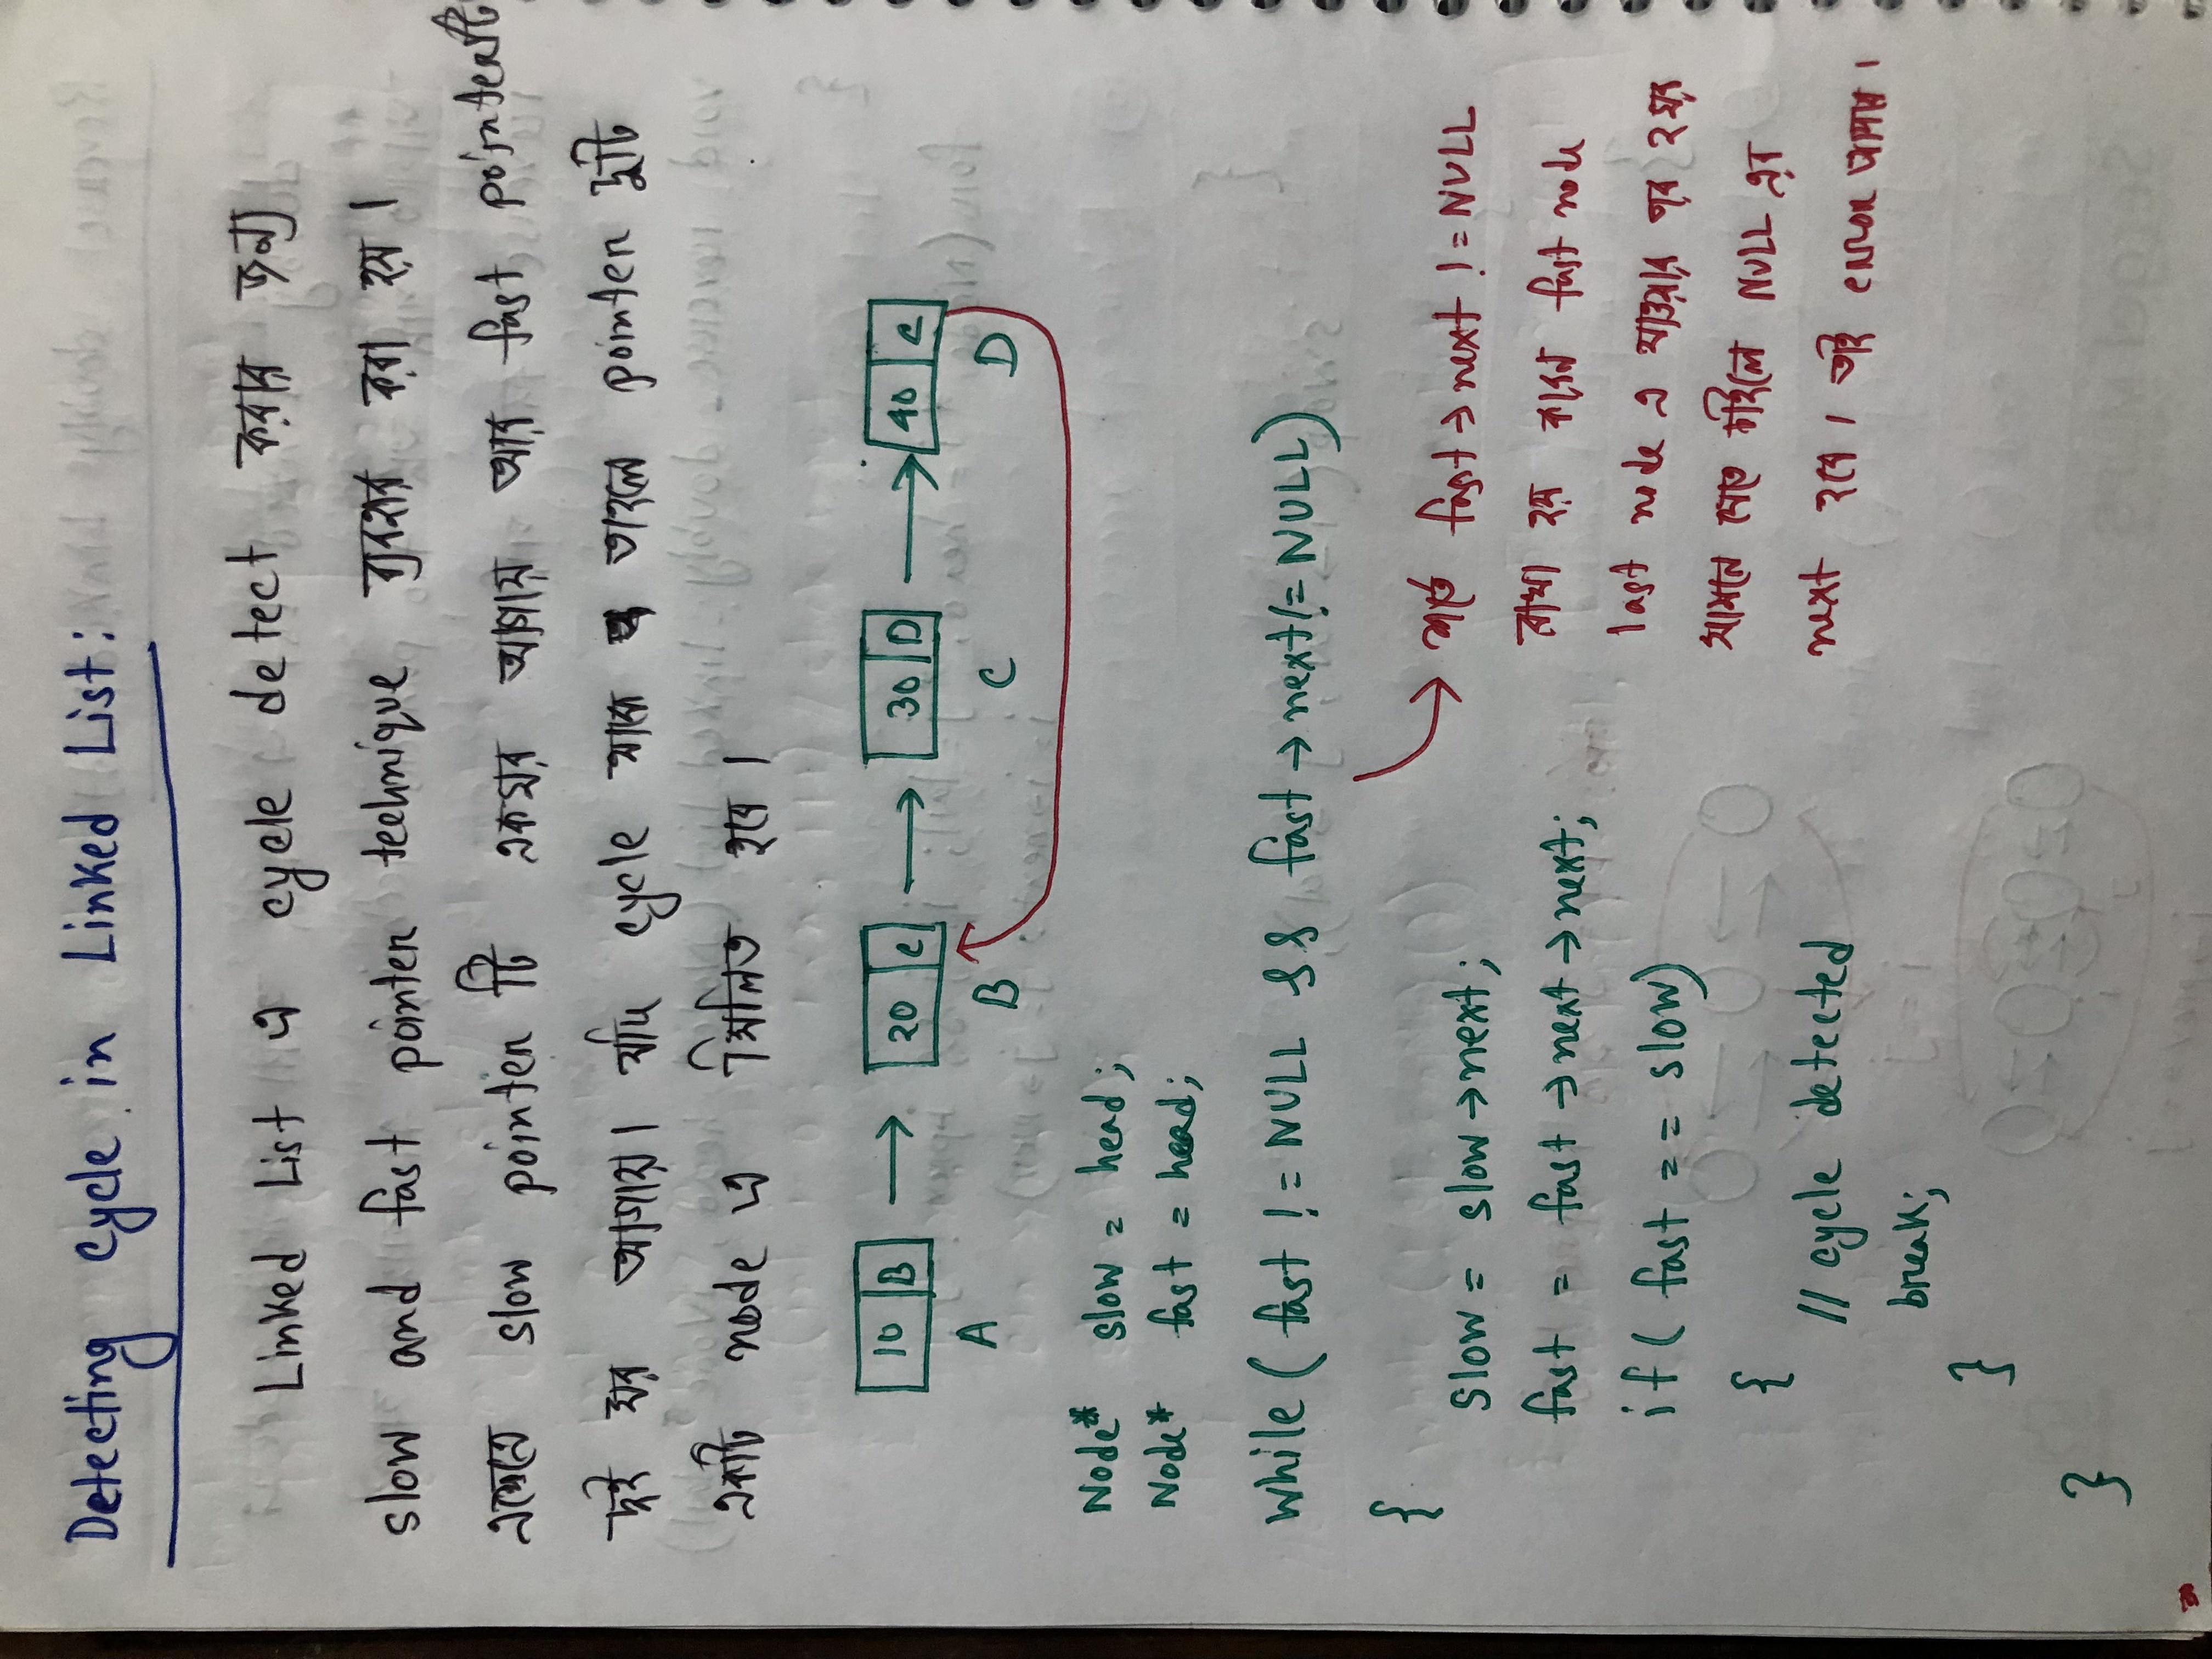 Detecting cycle in Linked List:
Linked List এ cycle detect করার জন্য
slow and fast pointer technique ব্যবহার করা হয়।
এক্ষেত্রে slow pointer টি একঘর আগায় আর fast pointer টি
দুই ঘর আগায়। যদি cycle থাকে তাহলে pointer দুটি
একটি node এ মিলিত হবে।
10 B → 20 C → 30 D → 40 C
A B C D
Node* slow = head;
Node* fast = head;
while ( fast != NULL && fast → next != NULL)
{
slow = slow → next;
fast = fast → next → next;
if ( fast == slow)
{
// cycle detected
break;
}
}
→ শর্তে fast → next != NULL
রাখা হয় কারন fast node
last node এ যাওয়ার পর ২ ঘর
সামনে যেতে চাইলে NULL এর
next হবে। তাই error আসবে।